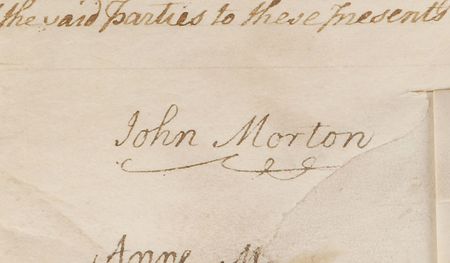 the said parties to these presents
John Morton
Anne